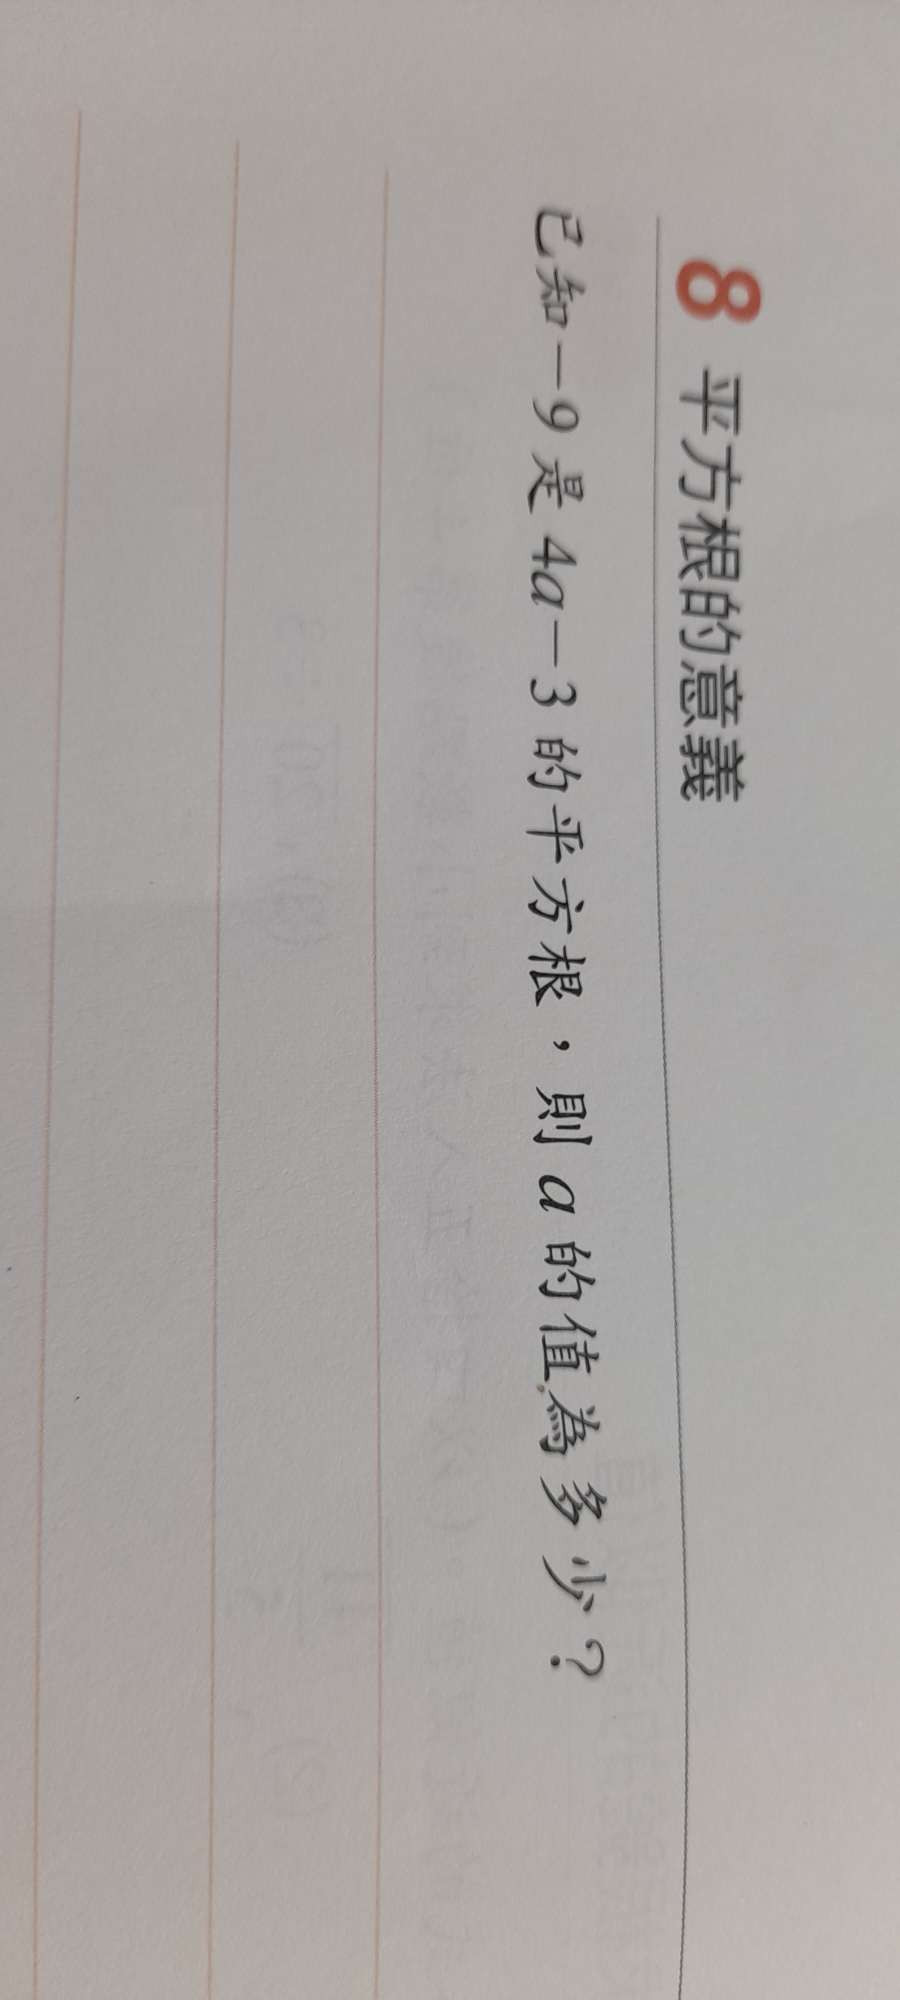 8 平方根的意義
已知－9是4a－3的平方根，則a的值為多少？